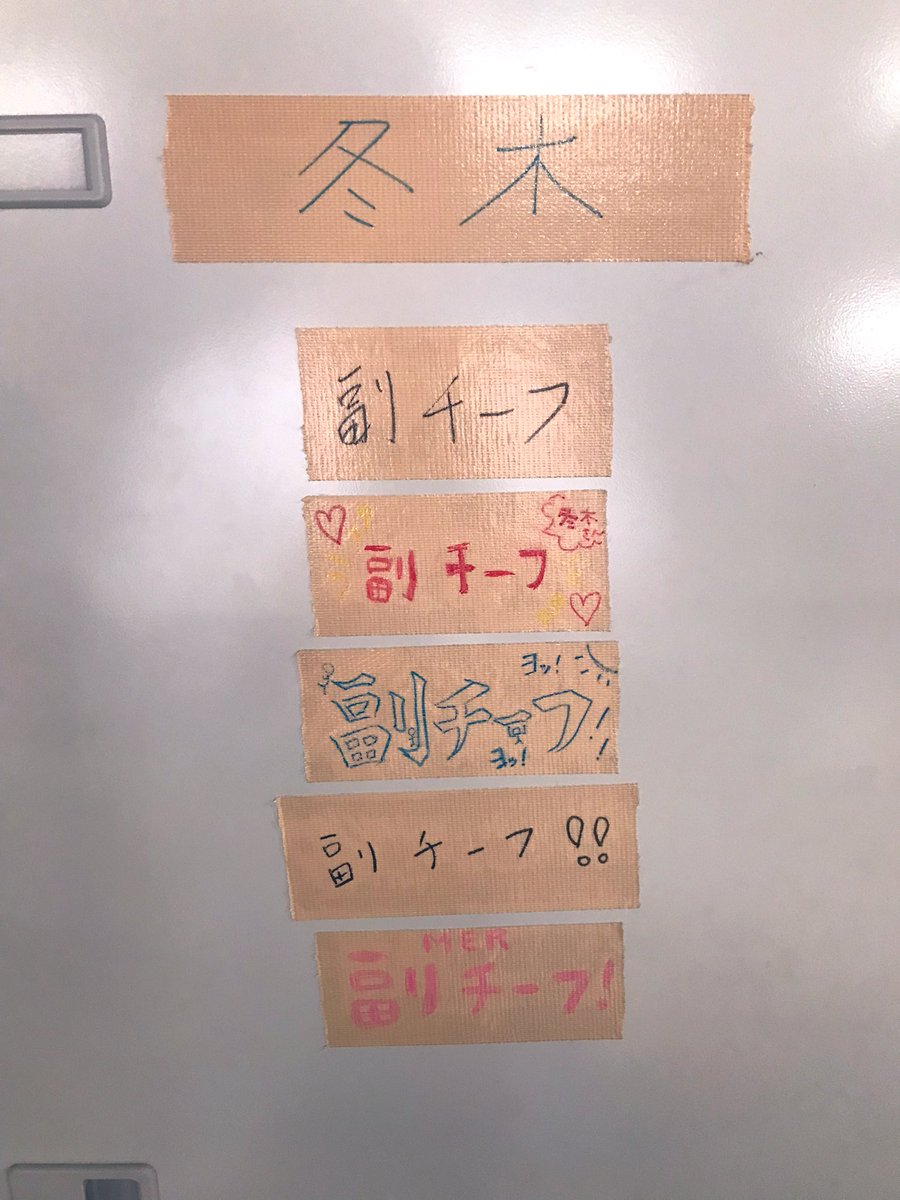 冬木
副チーフ
冬木
副チーフ
ヨッ!
副チーフ!!
ヨッ!
副チーフ!!
MER
副チーフ!